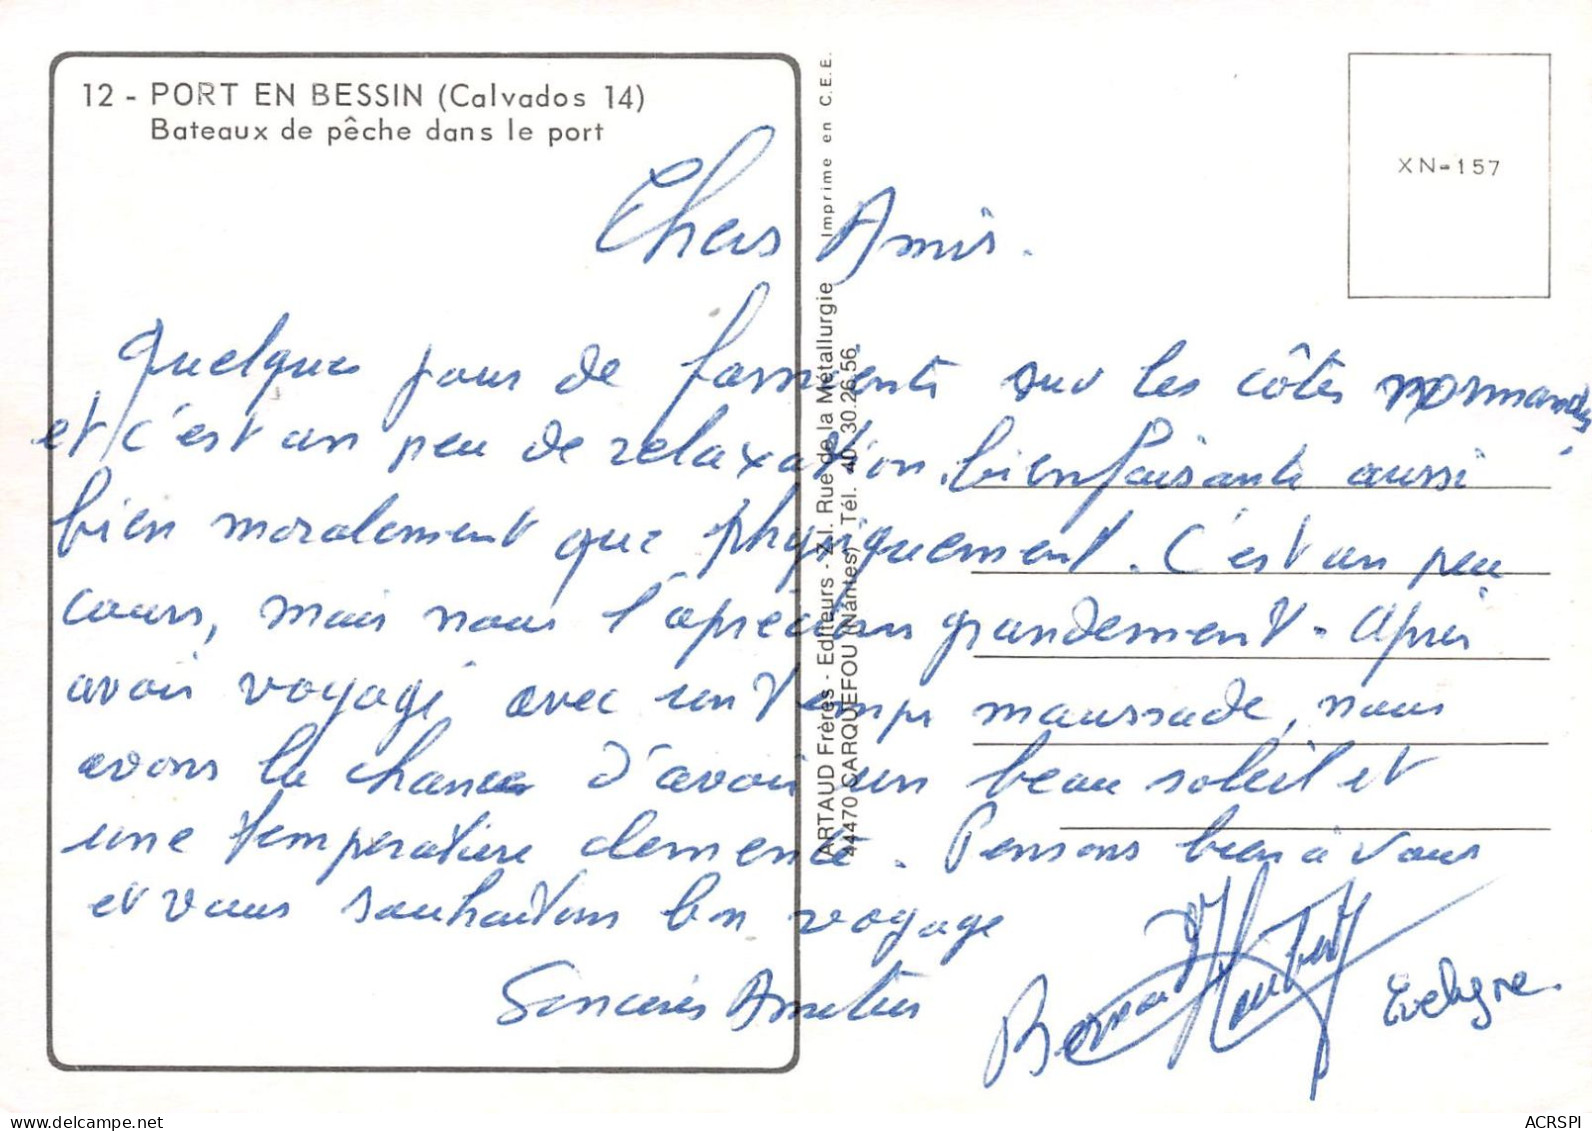 12 - PORT EN BESSIN (Calvados 14)
Bateaux de pêche dans le port
ARTAUD Frères - Editeurs - Z.I. Rue de la Métallurgie Imprime en C.E.E.
44470 CARQUEFOU (Nantes) Tél. 40.30.26.56
XN-157
Chers Amis.
Quelques jours de farniente sur les côtes normandes
et c'est un peu de relaxation bienfaisante aussi
bien moralement que physiquement. C'est un peu
cours, mais nous l'aprécions grandement. Après
avoir voyagé avec un temps maussade, nous
avons la chance d'avoir un beau soleil et
une température clemente. Pensons bien à vous
et vous souhaitons bon voyage
Sincères Amitiés
Bernard Evelyne.
delcampe.net
ACRSPI